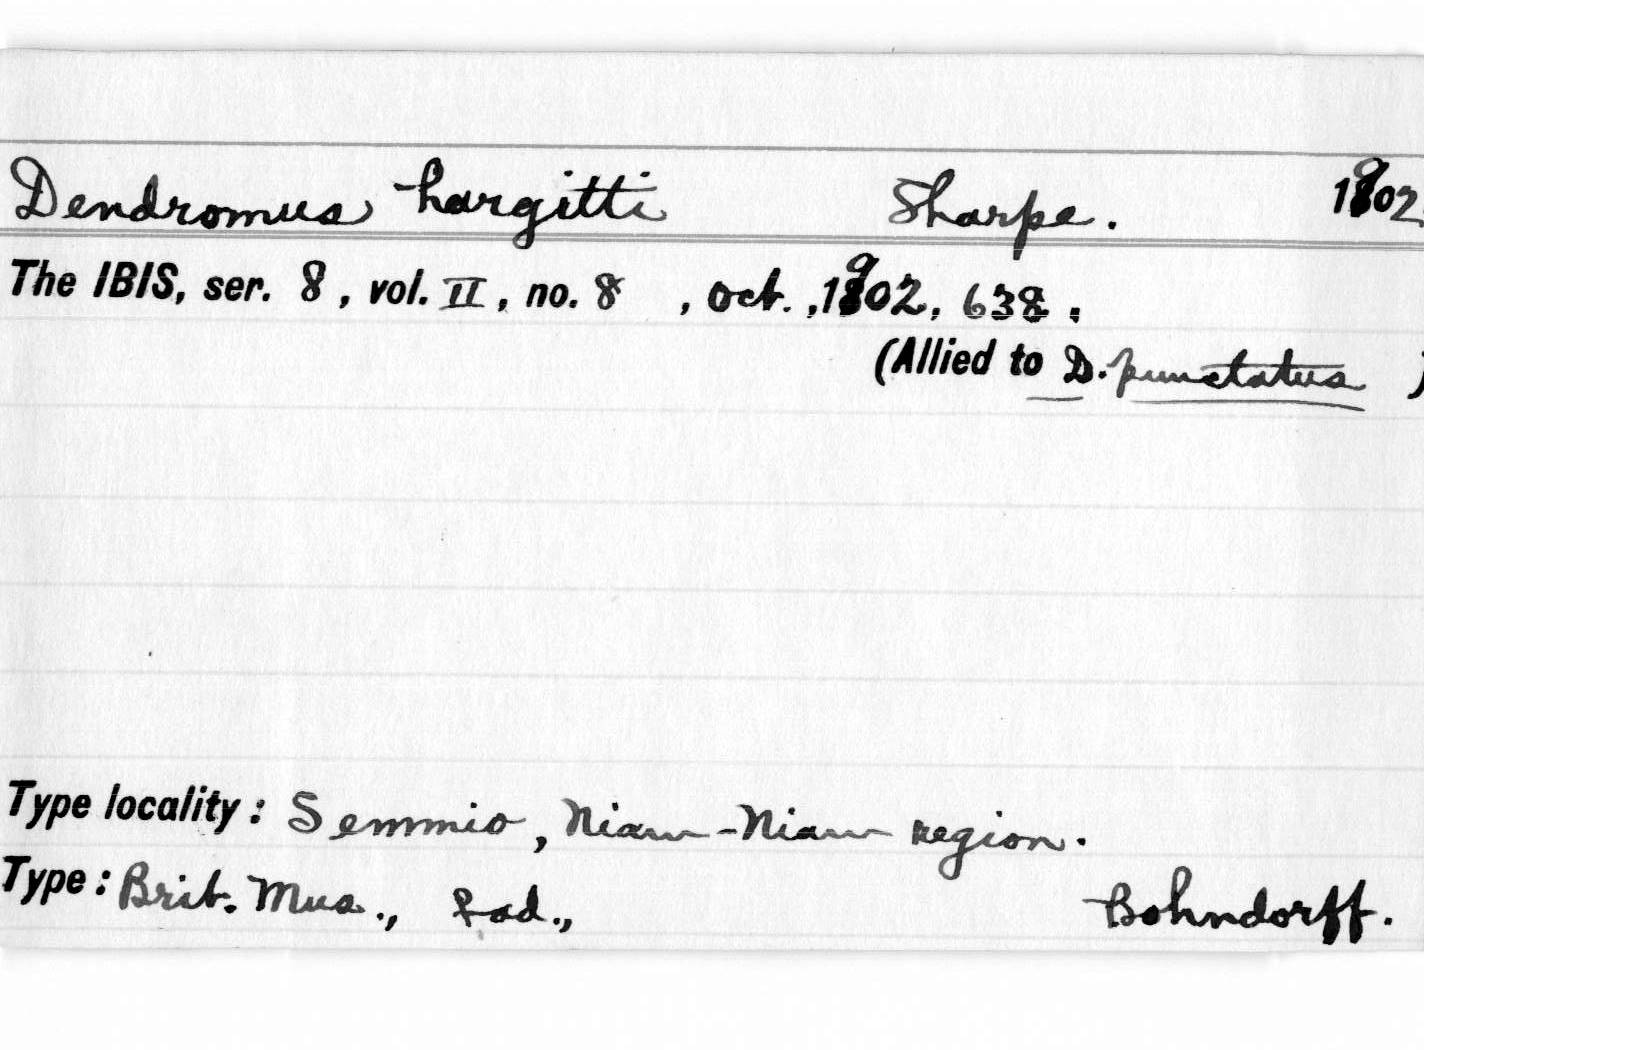 Dendromus hargitti Sharpe. 1902.
The IBIS, ser. 8, vol. II, no. 8, Oct., 1902, 638.
(Allied to D. punctatus )
Type locality: Semmio, Niam-Niam region.
Type: Brit. Mus., ♀ ad., Bohndorff.